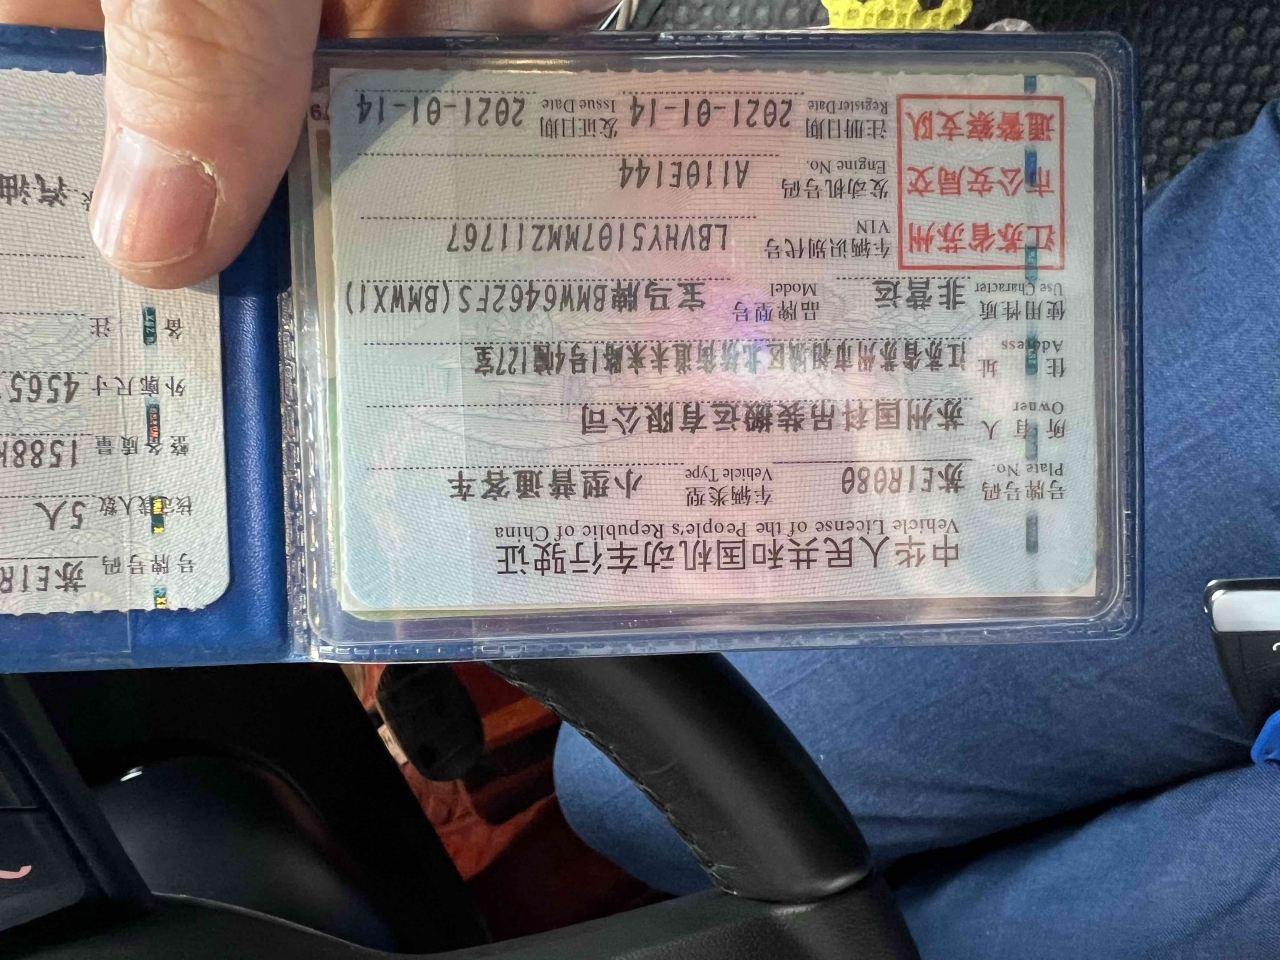 中华人民共和国机动车行驶证
Vehicle License of the People's Republic of China
号牌号码 苏E1R080 车辆类型 小型普通客车
Plate No. Vehicle Type
所有人 苏州国科吊装搬运有限公司
Owner
住址 江苏省苏州市相城区北桥街道未来路1号4幢127室
Address
使用性质 非营运 品牌型号 宝马牌BMW6462FS(BMWX1)
Use Character Model
江苏省苏州
市公安局交
通警察支队
车辆识别代号 LBVHY5107MMZ11767
VIN
发动机号码 A110E144
Engine No.
注册日期 2021-01-14 发证日期 2021-01-14
Register Date Issue Date
号牌号码 苏E1R
核定载人数 5人
整备质量 1588k
外廓尺寸 4565
备注
汽油